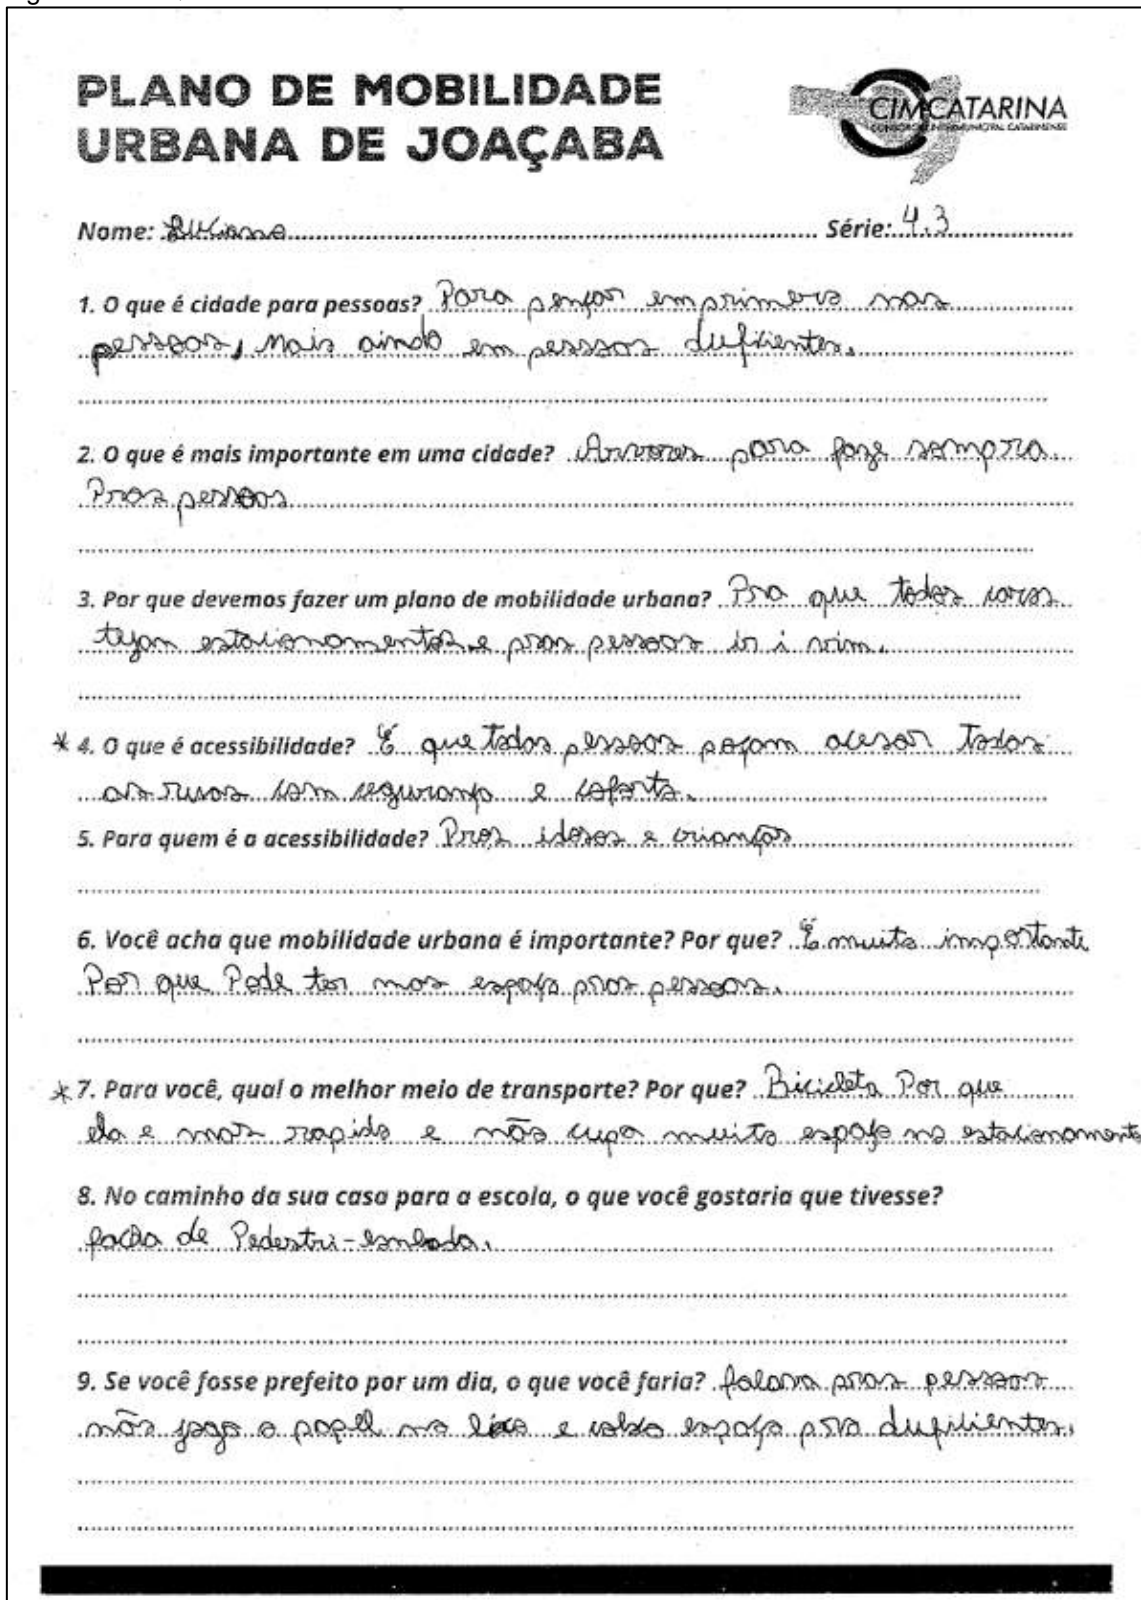 PLANO DE MOBILIDADE
URBANA DE JOAÇABA
CIMCATARINA
CONSÓRCIO INTERMUNICIPAL CATARINENSE
Nome: Série: 4.3
1. O que é cidade para pessoas? Para pensar em primero nas
pessoas, mais ainda em pessoas duficientes.
2. O que é mais importante em uma cidade? Arvores para faze sompra
Pras pessoas
3. Por que devemos fazer um plano de mobilidade urbana? Pra que todos caros
tejam estacionamentos e pras pessoas ir i vim.
* 4. O que é acessibilidade? É que todas pessoas poçam acesar todas
as ruas com segurança e coforto.
5. Para quem é a acessibilidade? Pros idosos e crianças
6. Você acha que mobilidade urbana é importante? Por que? É muito importante
Por que Pode ter mas espaço pras pessoas.
* 7. Para você, qual o melhor meio de transporte? Por que? Bicicleta Por que
ela e mas rapido e não cupa muito espaço no estacionamento
8. No caminho da sua casa para a escola, o que você gostaria que tivesse?
facha de Pedestri-
9. Se você fosse prefeito por um dia, o que você faria? falava pras pessoas
não joga o papel no lixo e espaço pra dufilientes.